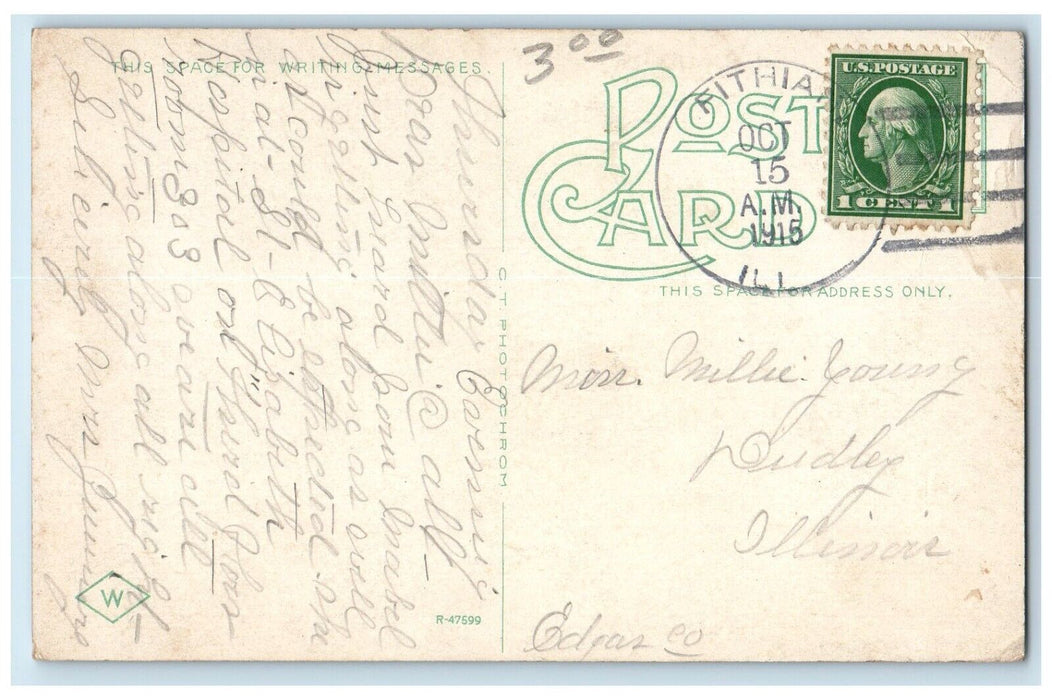 THIS SPACE FOR WRITING MESSAGES.
3 00
POST
CARD
FITHIAN
OCT
15
A.M.
1915
ILL.
U.S. POSTAGE
1 CENT 1
THIS SPACE FOR ADDRESS ONLY.
Thursday Evening
Dear Millie @ all
Just heard from Mabel
is getting along as well
as could be expected she
is at St Elizabeth
Hospital on third floor
Room 303 we are all
getting along all right
Lulie
Miss. Millie Young
Dudley
Illinois
Edgar co
C.T. PHOTOCHROM
W
R-47599